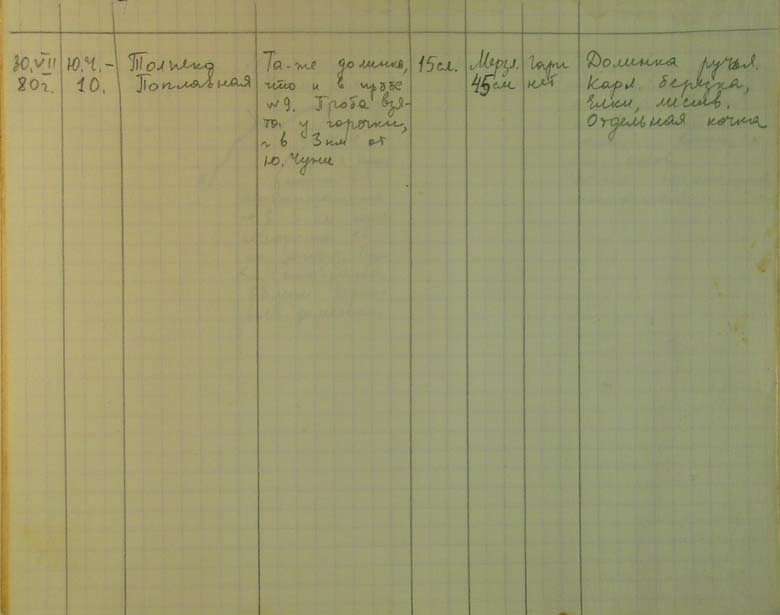 30.VII
80г.
Ю.Ч.-
10.
Поплавная
Та-же долинка,
что и в пробе
№9. Проба взя-
та у горочки,
в 3 км от
Ю. Чужи
15 см.
Мерзл.
45см
Гари
нет
Долинка ручья.
Карл. березка,
елки, листв.
Отдельная кочка